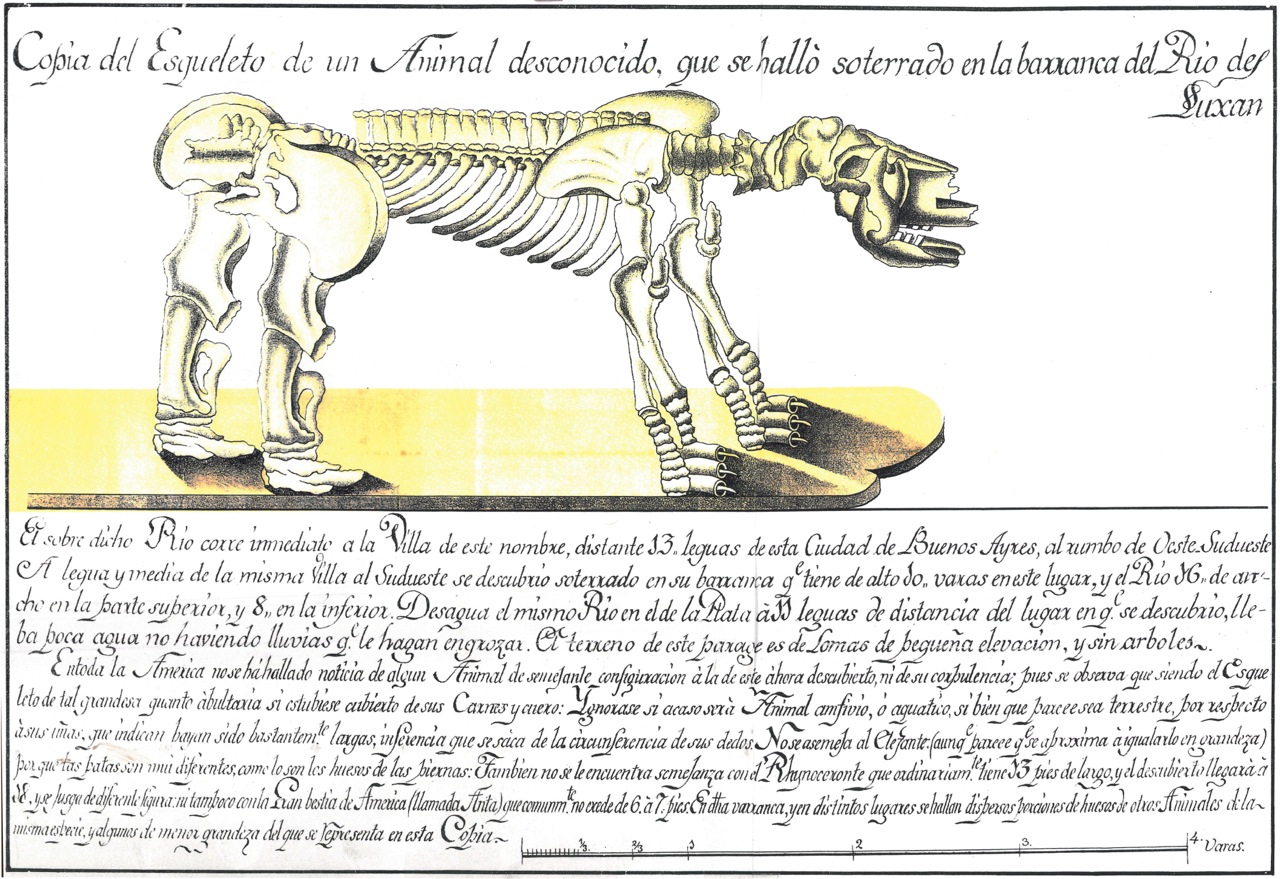 Copia del Esqueleto de un Animal desconocido, que se hallò soterrado en la barranca del Rio de
Luxan
El sobre dicho Rio corre inmediato a la Villa de este nombre, distante 13,, leguas de esta Ciudad de Buenos Ayres, al rumbo de Oeste Sudueste
A legua y media de la misma villa al Sudueste se descubrio soterrado en su barranca q.e tiene de alto 10,, varas en este lugar, y el Rio 16,, de an-
cho en la parte superior, y 8,, en la inferior. Desagua el mismo Rio en el de la Plata à 11 leguas de distancia del lugar en q.e se descubrio, lle-
ba poca agua no haviendo lluvias q.e le hagan engrozar. El terreno de este parage es de Lomas de pequeña elevacion, y sin arboles.
En toda la America no se há hallado noticia de algun Animal de semejante configuracion à la de este àhora descubierto, ni de su corpulencia; pues se observa que siendo el Esque
leto de tal grandesa quanto àbultaria si estubiese cubierto de sus Carnes y cuero: Ygnorase si acaso serà Animal amfivio, ó aquatico, si bien que parece sea terrestre, por respecto
à sus uñas, que indican hayan sido bastantem.te largas, inferencia que se sàca de la circunferencia de sus dedos. No se asemeja al Elefante: (aunq.e parece q.e se aproxima à igualarlo en grandeza)
por que las patas son mui diferentes, como lo son los huesos de las piernas: Tambien no se le encuentra semejanza con el Rhynoceronte que ordinariam.te tiene 13 pies de largo, y el descubierto llegarà à
18, y se jusga de diferente figura: ni tampoco con la Gran bestia de America (llamada Anta) que comunm.te no excede de 6. à 7. pies. En dha varranca, y en distintos lugares se hallan dispersos porciones de huesos de otros Animales de la
misma especie, y algunos de menor grandeza del que se representa en esta Copia
⅓. ⅔ 1 2 3. 4. Varas.